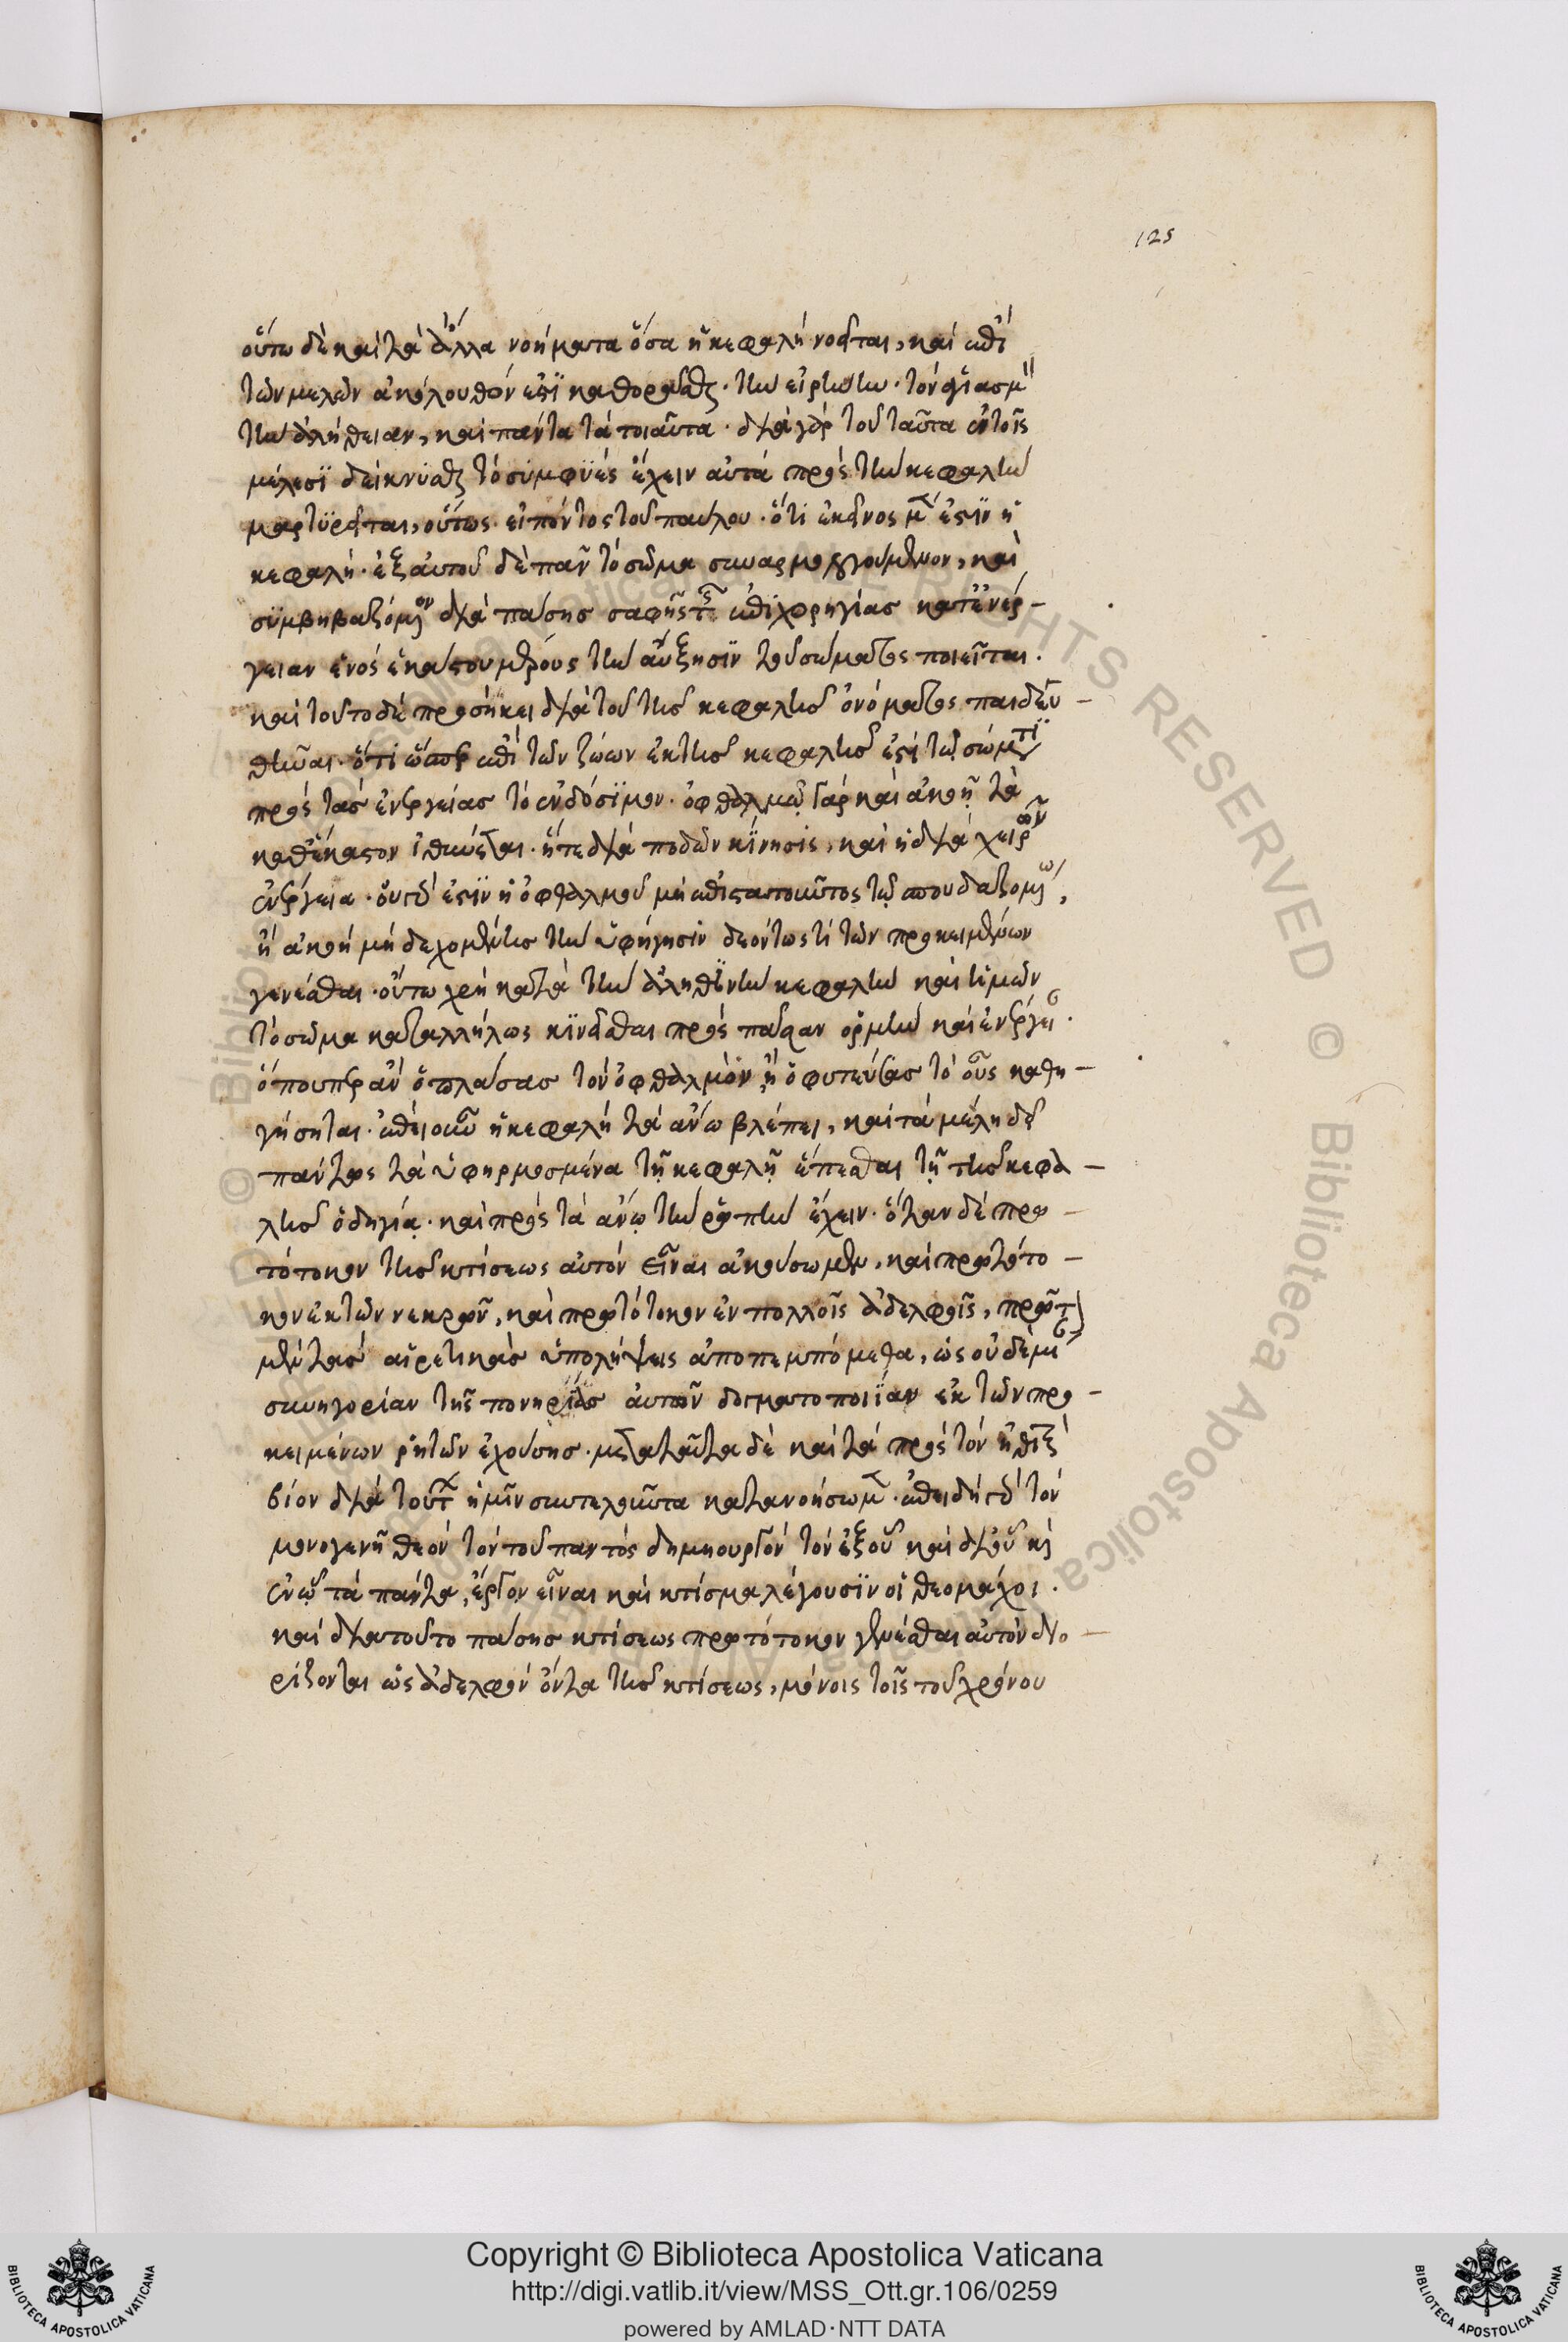 125
οὕτω δὲ καὶ τὰ ἄλλα νοήματα ὅσα ἡ κεφαλὴ νοεῖται, καὶ ἐπὶ
τῶν μελῶν ἀκόλουθόν ἐστι καθορᾶσθαι· τὴν εἰρήνην· τὸν ἁγιασμὸν
τὴν ἀλήθειαν, καὶ πάντα τὰ τοιαῦτα· διὰ γὰρ τοῦ ταῦτα ἐν τοῖς
μέλεσι δείκνυσθαι τὸ συμφυὲς ἔχειν αὐτὰ πρὸς τὴν κεφαλὴν
μαρτυρεῖται, οὕτως εἰπόντος τοῦ παύλου· ὅτι ἐκεῖνος μέν ἐστιν ἡ
κεφαλή· ἐξ αὐτοῦ δὲ πᾶν τὸ σῶμα συναρμολογούμενον, καὶ
συμβηβαζόμενον διὰ πάσης σαφῆς τῆς ἐπιχορηγίας κατ' ἐνέρ-
γειαν ἑνὸς ἑκάστου μέρους τὴν αὔξησιν τοῦ σώματος ποιεῖται.
καὶ τοῦτο δὲ προσήκει διὰ τοῦ τῆς κεφαλῆς ὀνόματος παιδευ-
θῆναι· ὅτι ὥσπερ ἐπὶ τῶν ζώων ἐκ τῆς κεφαλῆς ἐστὶ τῷ σώματι
πρὸς τὰς ἐνεργείας τὸ ἐνδόσιμον· ὀφθαλμῷ γὰρ καὶ ἀκοῇ τὰ
καθέκαστον ἰθύνεται· ἥτε διὰ ποδῶν κίνησις, καὶ ἡ διὰ χειρῶν
ἐνέργεια· οὐκ ἔστιν ἢ ὀφθαλμοῦ μὴ ἐπιστατοῦντος τῷ σπουδαζομένῳ,
ἢ ἀκοῆ μὴ δεχομένης τὴν ὑφήγησιν δεόντως τὶ τῶν προκειμένων
γενέσθαι· οὕτω χρὴ κατὰ τὴν ἀληθινὴν κεφαλὴν καὶ ἡμῶν
τὸ σῶμα καταλλήλως κινεῖσθαι πρὸς πᾶσαν ὁρμὴν καὶ ἐνέργειαν.
ὅπουπερ ἂν ὁ πλάσας τὸν ὀφθαλμὸν, ἢ ὁ φυτεύσας τὸ οὖς καθη-
γήσηται· ἐπεὶ οὖν ἡ κεφαλὴ τὰ ἄνω βλέπει, καὶ τὰ μέλη δεῖ
πάντως τὰ ὑφηρμοσμένα τῇ κεφαλῇ ἕπεσθαι τῇ τῆς κεφα-
λῆς ὁδηγίᾳ· καὶ πρὸς τὰ ἄνω τὴν ῥοπὴν ἔχειν· ὅταν δὲ πρω-
τότοκον τῆς κτίσεως αὐτὸν εἶναι ἀκούσωμεν, καὶ πρωτότο-
κον ἐκ τῶν νεκρῶν, καὶ πρωτότοκον ἐν πολλοῖς ἀδελφοῖς, πρῶτον
μὲν τὰς αἱρετικὰς ὑπολήψεις ἀποπεμπόμεθα, ὡς οὐδεμίαν
συνηγορίαν τῆς πονηρίας αὐτῶν δογματοποιίαν ἐκ τῶν προ-
κειμένων ῥητῶν ἐχούσης· μετὰ ταῦτα δὲ καὶ τὰ πρὸς τὸν ἠθικὸν
βίον διὰ τούτων ἡμῖν συντελοῦντα κατανοήσωμεν· ἐπειδὴ γὰρ τὸν
μονογενῆ θεὸν τὸν τοῦ παντὸς δημιουργὸν τὸν ἐξ οὗ καὶ δι' οὗ καὶ
ἐν ᾧ τὰ πάντα, ἔργον εἶναι καὶ κτίσμα λέγουσιν οἱ θεομάχοι.
καὶ διατοῦτο πάσης κτίσεως πρωτότοκον γενέσθαι αὐτὸν διο-
ρίζονται ὡς ἀδελφὸν ὄντα τῆς κτίσεως, μόνοις τοῖς τοῦ χρόνου
Copyright © Biblioteca Apostolica Vaticana
http://digi.vatlib.it/view/MSS_Ott.gr.106/0259
powered by AMLAD·NTT DATA